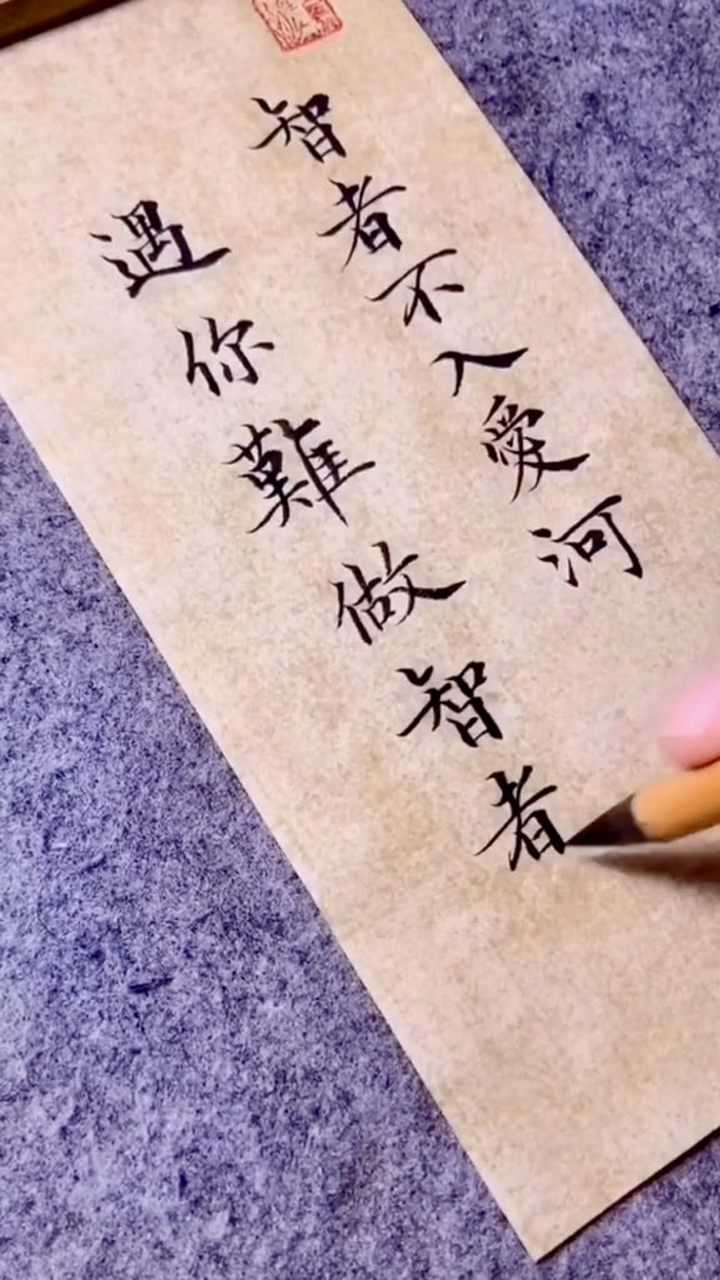 智者不入愛河
遇你難做智者